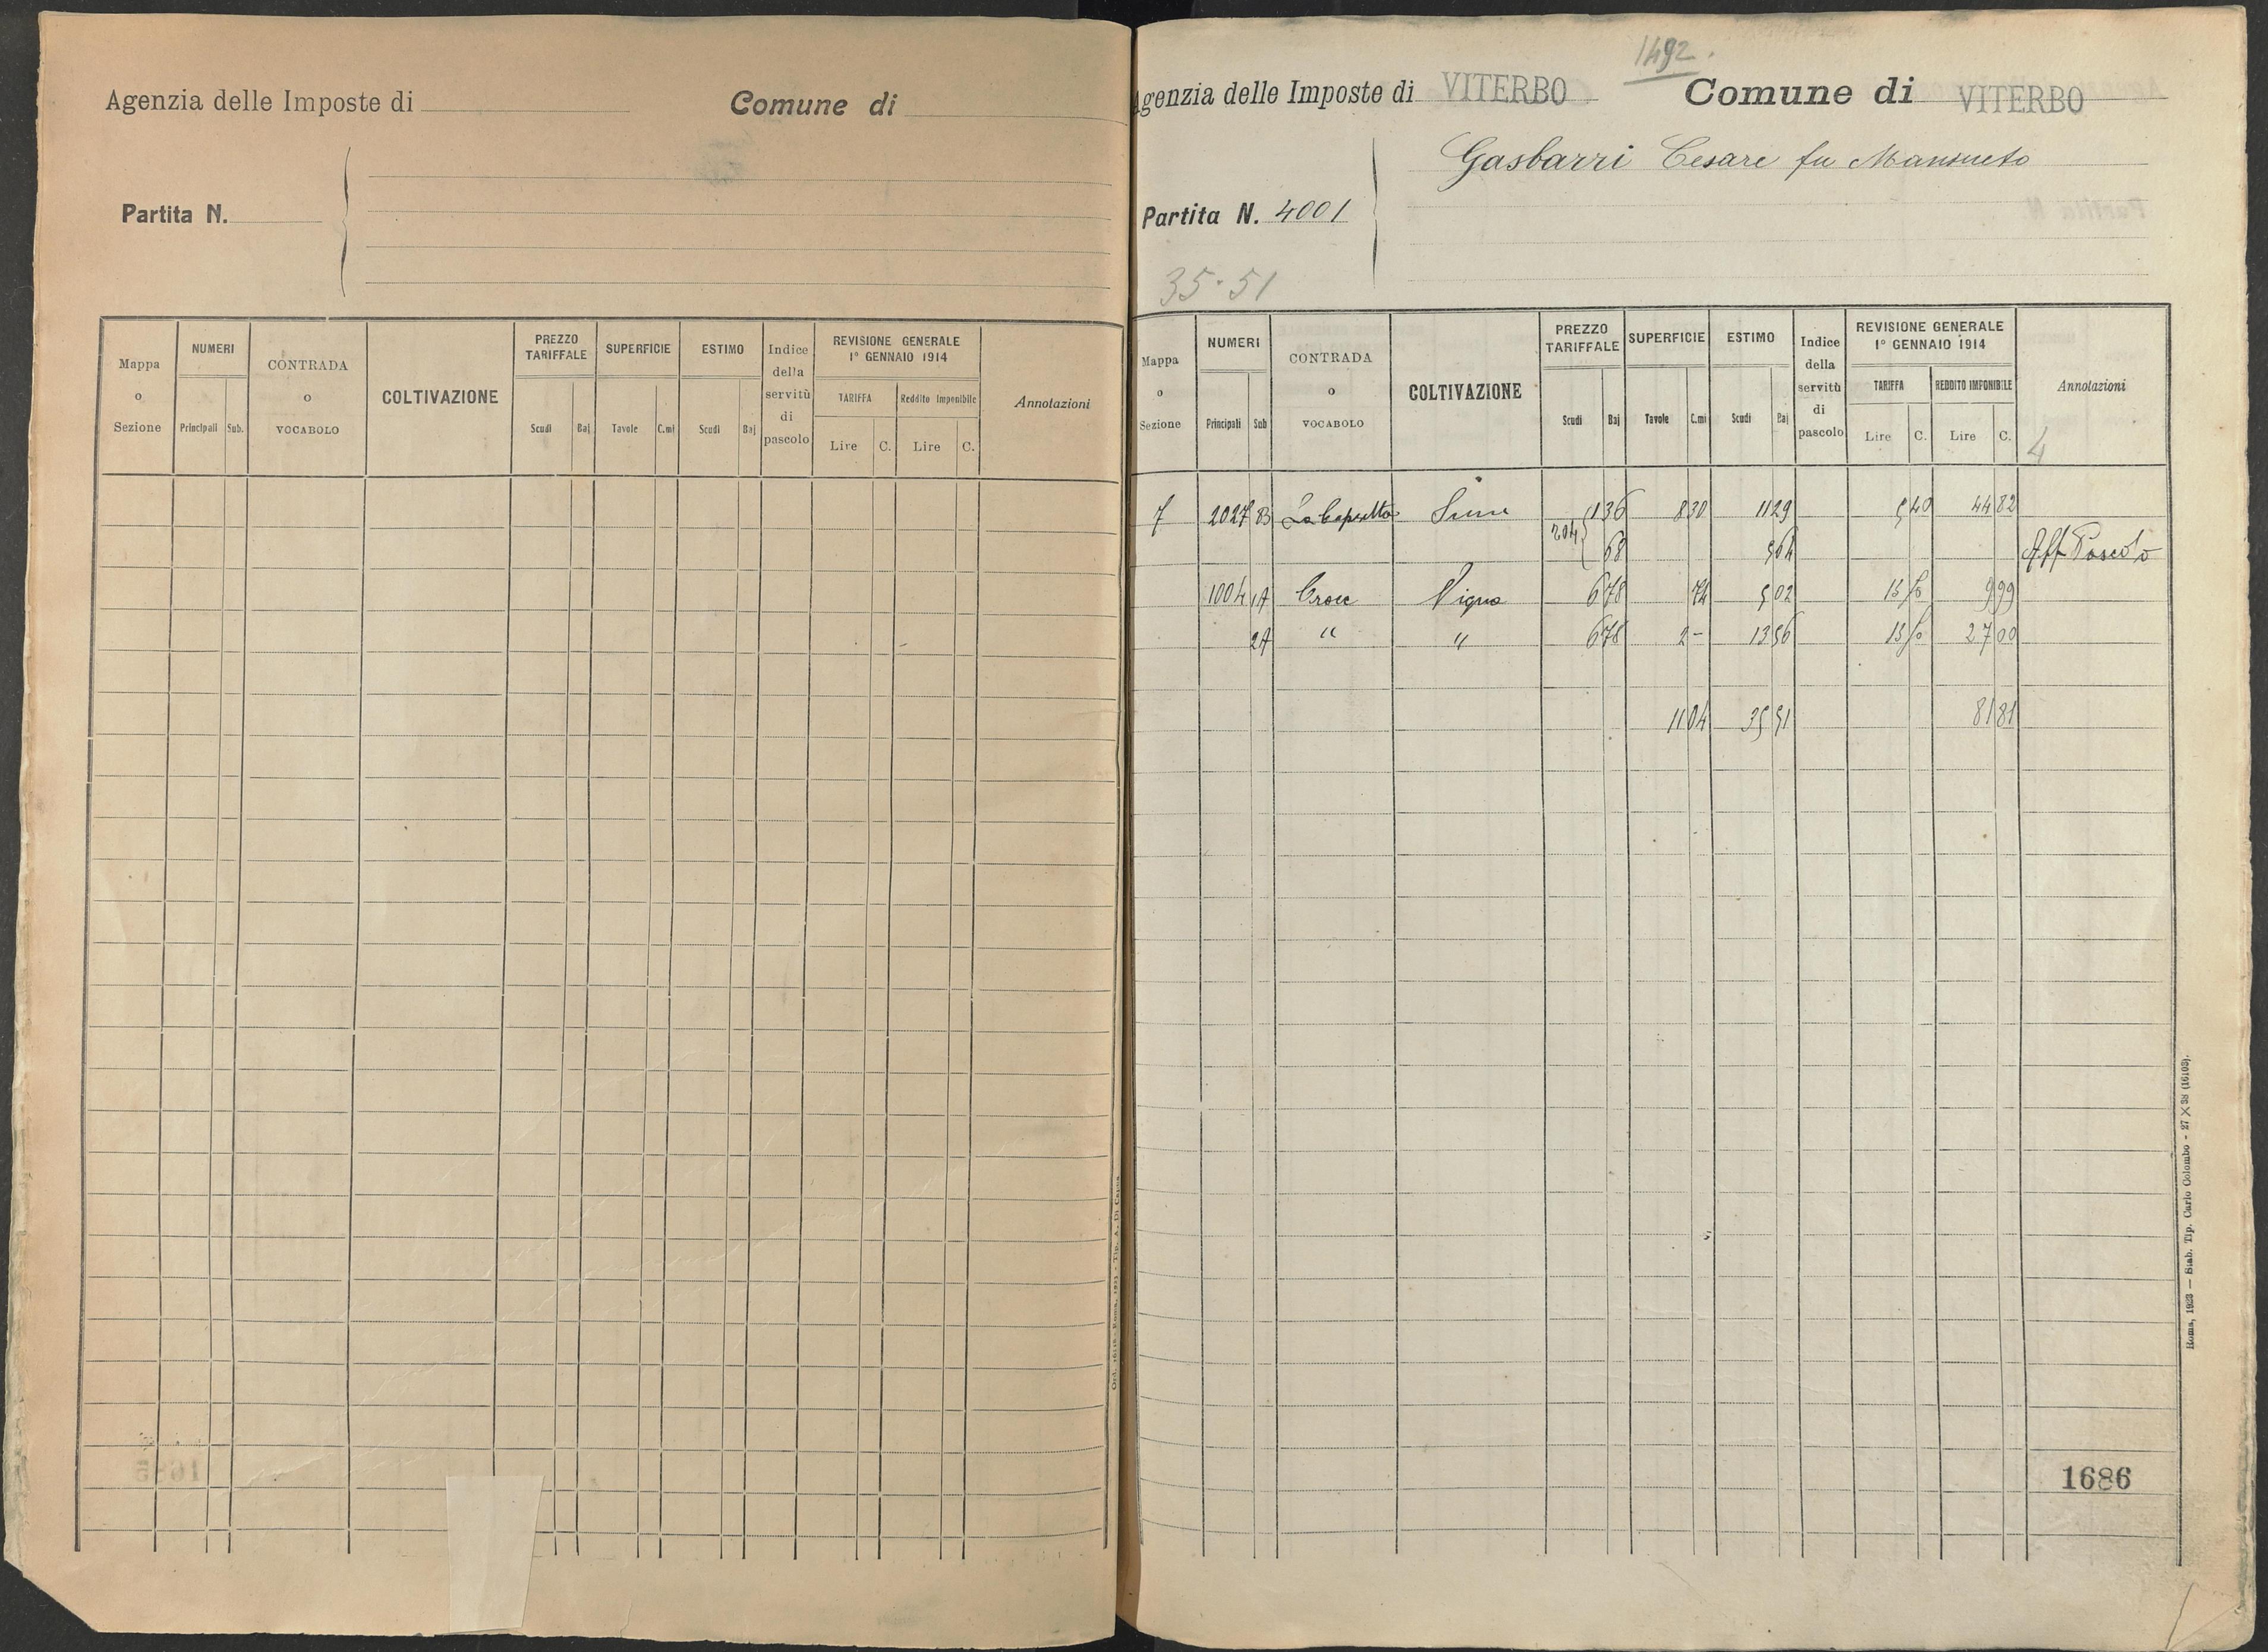 Agenzia delle Imposte di
Comune di
Partita N.
Mappa o Sezione
NUMERI
Principali Sub.
CONTRADA o VOCABOLO
COLTIVAZIONE
PREZZO TARIFFALE
Scudi Baj
SUPERFICIE
Tavole C.mi
ESTIMO
Scudi Baj
Indice della servitù di pascolo
REVISIONE GENERALE
1° GENNAIO 1914
TARIFFA Reddito Imponibile
Lire C. Lire C.
Annotazioni
1492.
Agenzia delle Imposte di VITERBO Comune di VITERBO
Gasbarri Cesare fu Mansueto
Partita N. 4001
35·51
Mappa o Sezione
NUMERI
Principali Sub
CONTRADA o VOCABOLO
COLTIVAZIONE
PREZZO TARIFFALE
Scudi Baj
SUPERFICIE
Tavole C.mi
ESTIMO
Scudi Baj
Indice della servitù di pascolo
REVISIONE GENERALE
1° GENNAIO 1914
TARIFFA REDDITO IMPONIBILE
Lire C. Lire C.
Annotazioni
4
7 2027 B 1 36 8 30 11 29 5 40 44 82
204 68 5 64 Aff Pascolo
1004 1A Croce Vigna 6 78 74 5 02 13 50 9 99
2A " " 6 78 2 - 13 56 13 50 27 00
11 04 35 51 81 81
1686
Roma, 1923 — Stab. Tip. Carlo Colombo - 27 X 38 (16103).